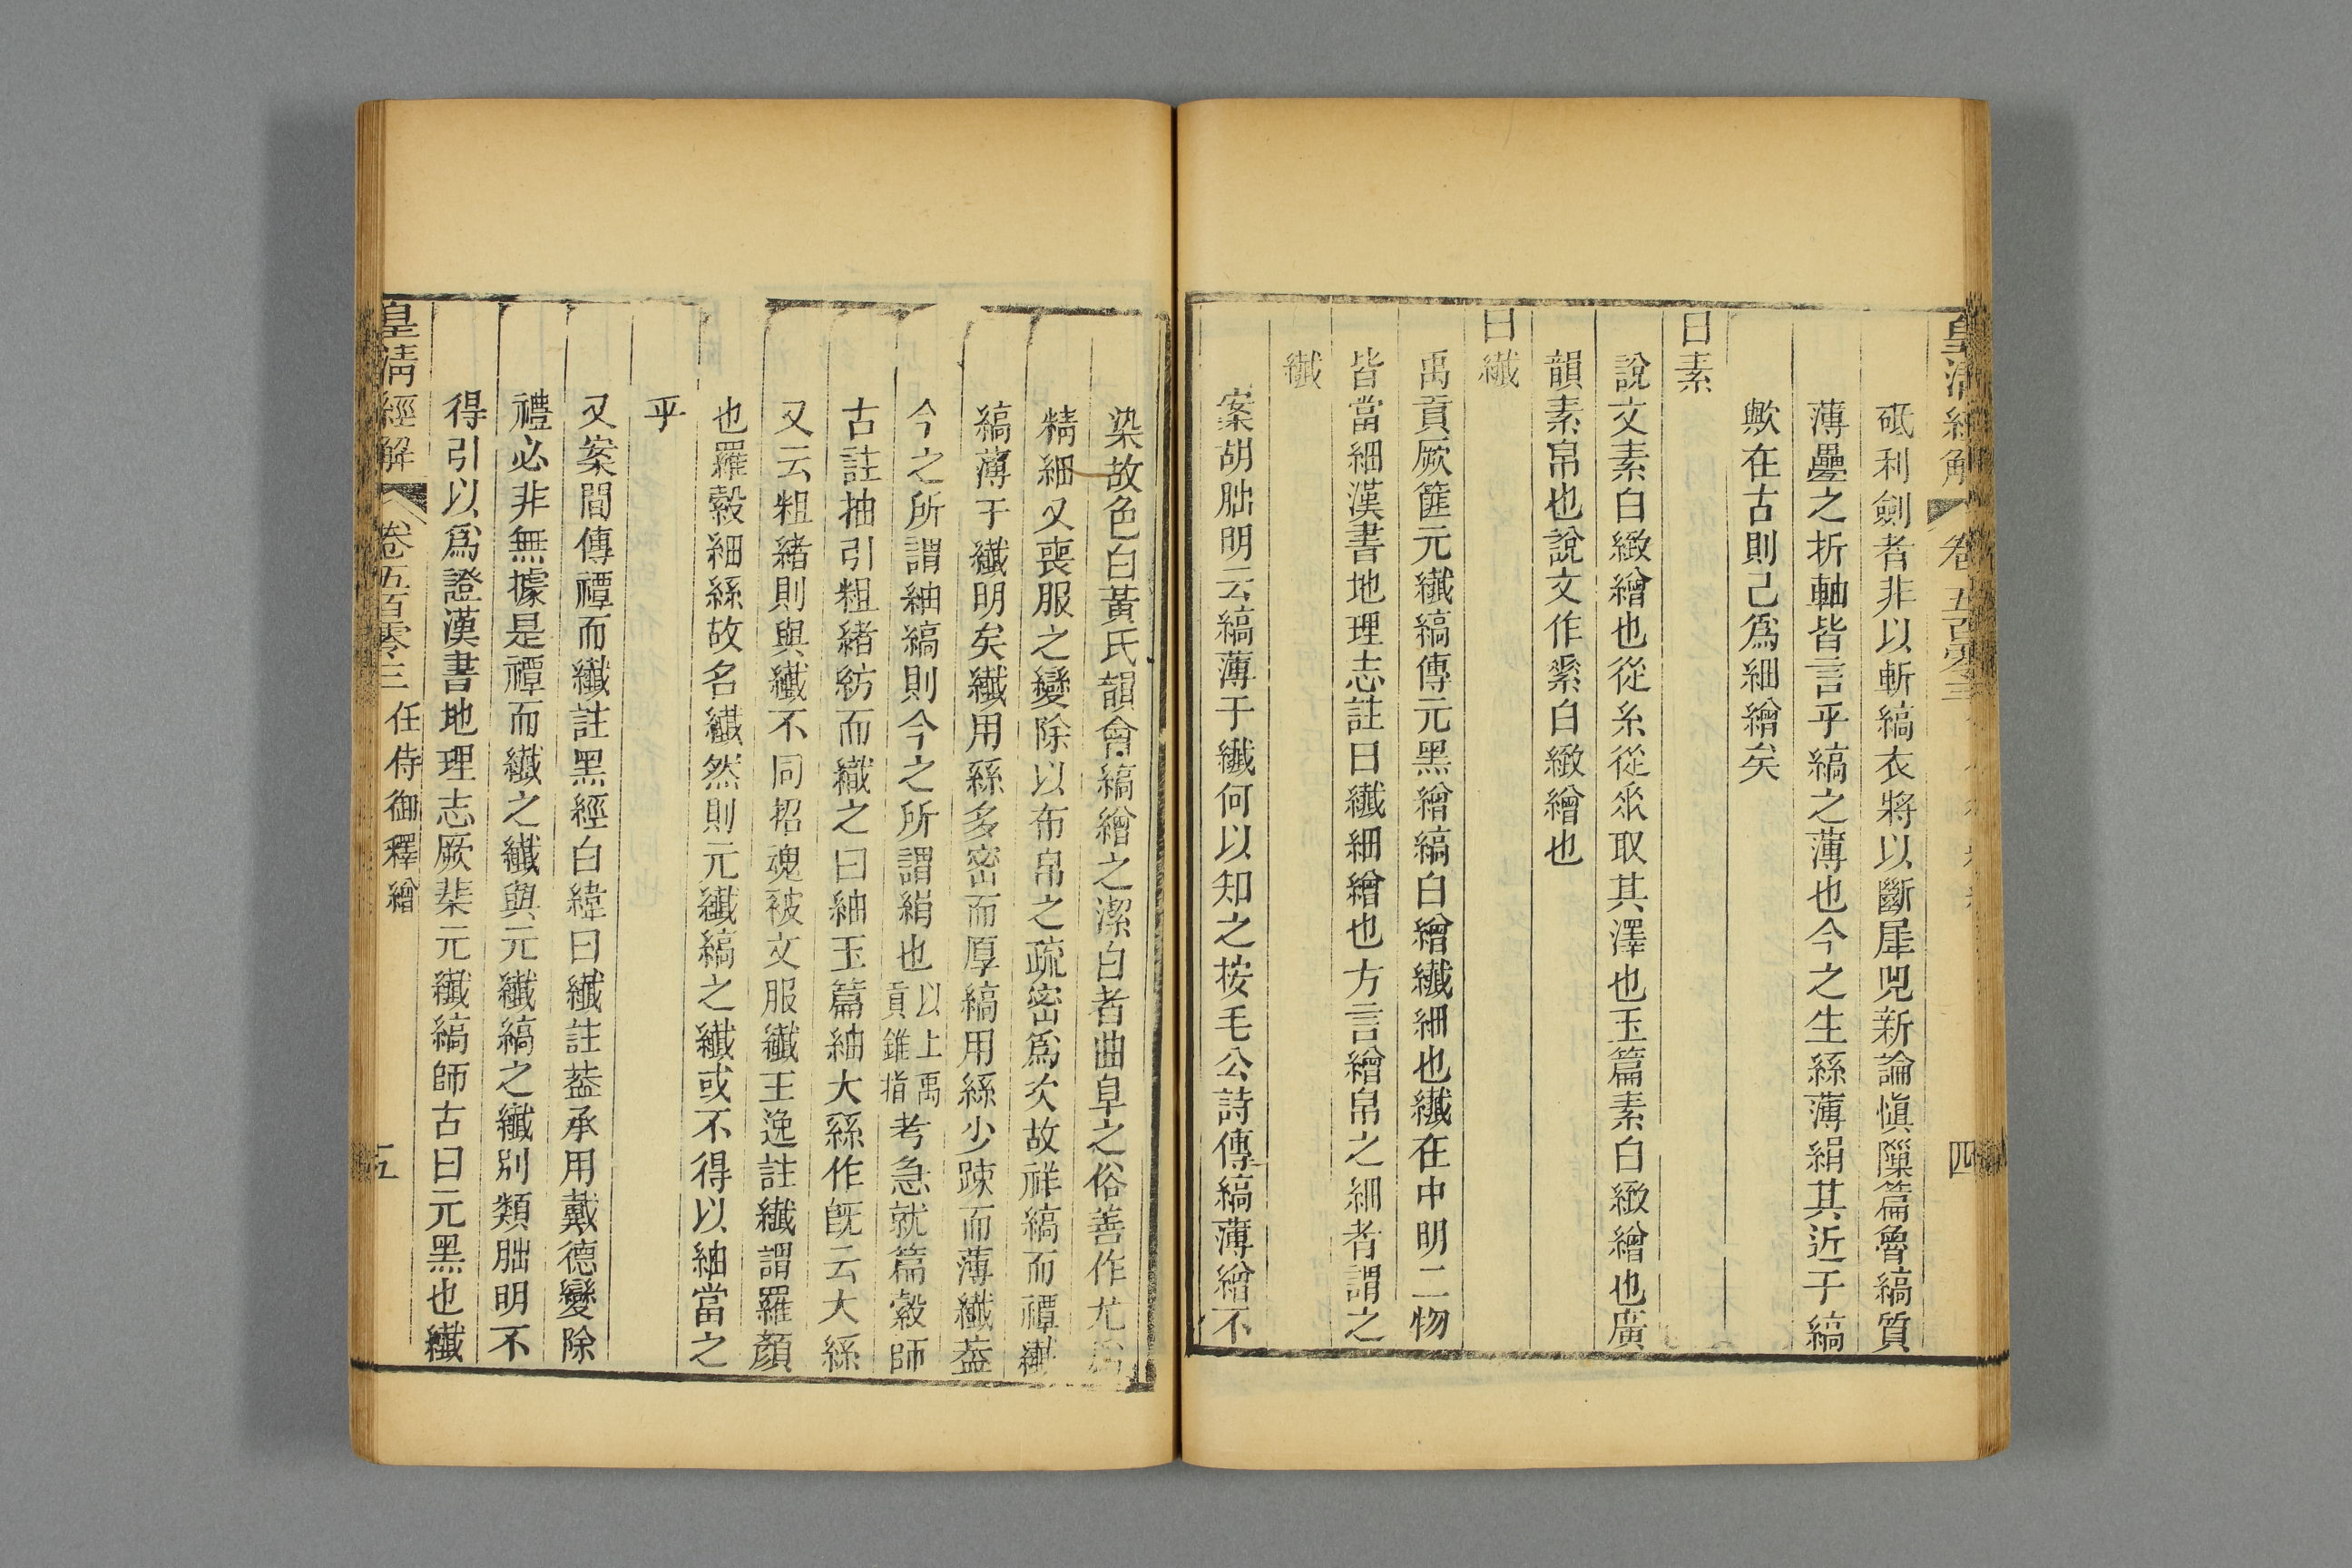 皇清經解 卷五百零三 四
砥利劍者非以斬縞衣將以斷犀兕新論愼隟篇魯縞質
薄疊之折軸皆言乎縞之薄也今之生絲薄絹其近于縞
歟在古則己爲細繒矣
曰素
說文素白緻繒也從糸從𠂹取其澤也玉篇素白緻繒也廣
韻素帛也說文作𦃃白緻繒也
曰纖
禹貢厥篚元纖縞傳元黑繒縞白繒纖細也纖在中明二物
皆當細漢書地理志註曰纖細繒也方言繒帛之細者謂之
纖
案胡朏明云縞薄于纖何以知之按毛公詩傳縞薄繒不
染故色白黃氏韻會縞繒之潔白者曲阜之俗善作尤爲
精細又喪服之變除以布帛之疏密爲次故祥縞而禫纖
縞薄于纖明矣纖用絲多密而厚縞用絲少踈而薄纖葢
今之所謂紬縞則今之所謂絹也以上禹貢錐指考急就篇縠師
古註抽引粗緒紡而織之曰紬玉篇紬大絲作旣云大絲
又云粗緒則與纖不同招魂被文服纖王逸註纖謂羅顏
也羅縠細絲故名纖然則元纖縞之纖或不得以紬當之
乎
又案間傳禫而纖註黑經白緯曰纖註葢承用戴德變除
禮必非無據是禫而纖之纖與元纖縞之纖別類朏明不
得引以爲證漢書地理志厥棐元纖縞師古曰元黑也纖
皇清經解 卷五百零三 任侍御釋繒 五